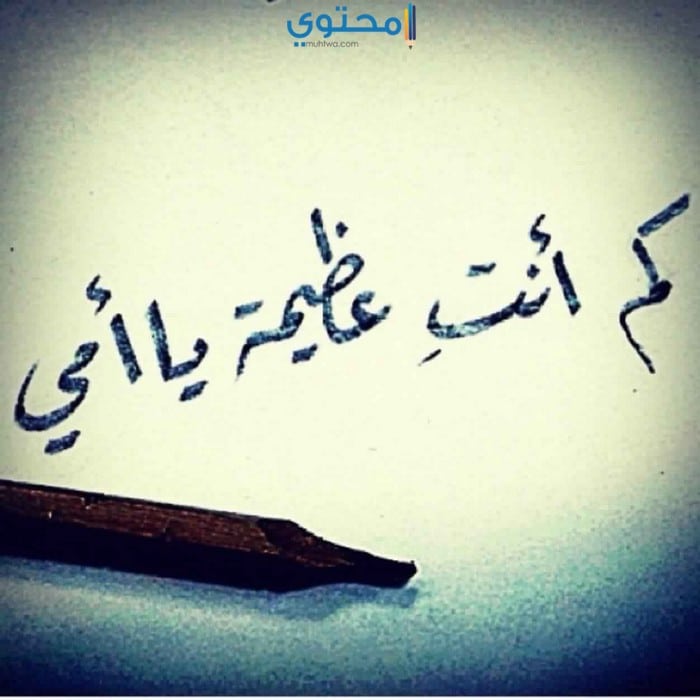 محتوي
muhtwa.com
كم أنتِ عظيمة يا أمي